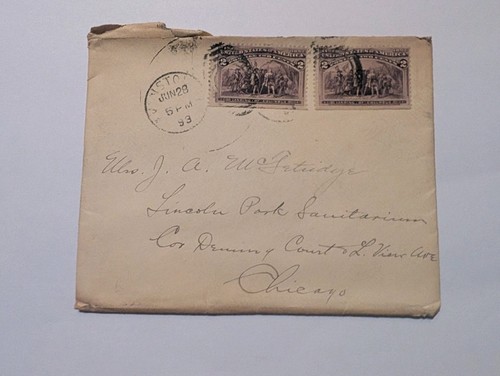 JUN 28
6 PM
93
2 2
2 2
Mrs. J. A. McFetridge
Lincoln Park Sanitarium
Cor Deming Court & L. View Ave
Chicago